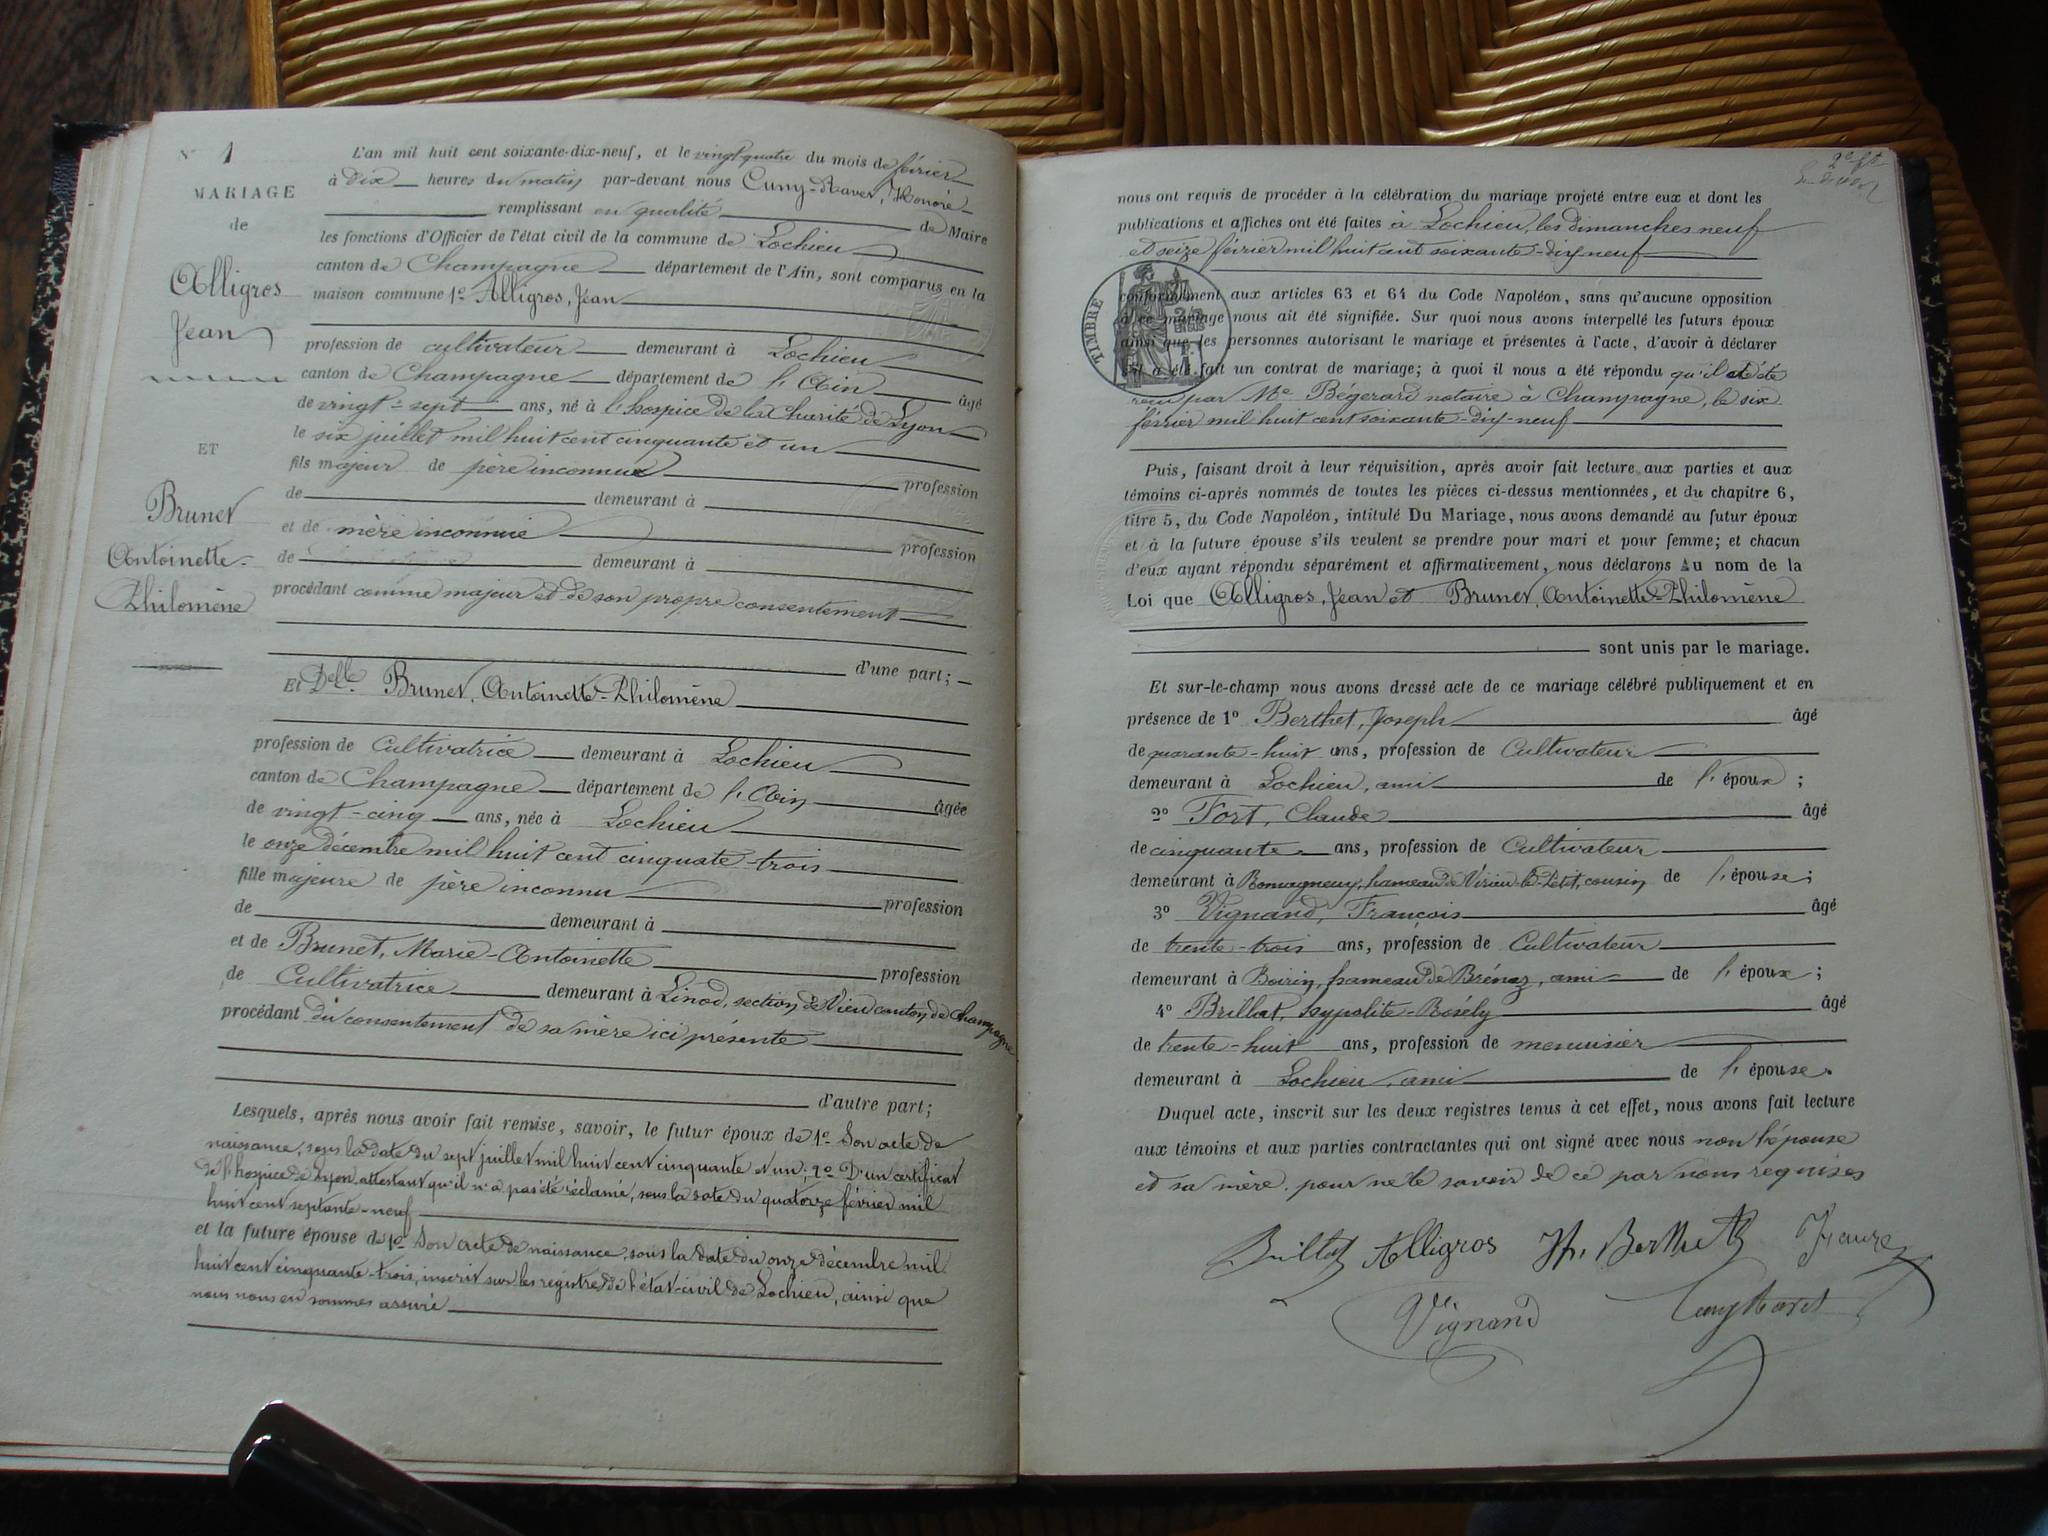 N° 1
MARIAGE
de
Alligros
Jean
ET
Brunet
Antoinette-
Philomène
L'an mil huit cent soixante-dix-neuf, et le vingt-quatre du mois de février
à dix heures du matin par-devant nous Cuny-Ravet, Honoré
remplissant en qualité de Maire
les fonctions d'Officier de l'état civil de la commune de Lochieu
canton de Champagne département de l'Ain, sont comparus en la
maison commune 1° Alligros, Jean
profession de cultivateur demeurant à Lochieu
canton de Champagne département de l'Ain âgé
de vingt-sept ans, né à l'hospice de la charité de Lyon
le six juillet mil huit cent cinquante et un
fils majeur de père inconnu profession
de demeurant à
et de mère inconnue profession
de demeurant à
procédant comme majeur et de son propre consentement
d'une part;
Et Delle Brunet, Antoinette-Philomène
profession de Cultivatrice demeurant à Lochieu
canton de Champagne département de l'Ain âgée
de vingt-cinq ans, née à Lochieu
le onze décembre mil huit cent cinquate-trois
fille majeure de père inconnu profession
de demeurant à
et de Brunet, Marie-Antoinette profession
de Cultivatrice demeurant à Linod, section de Vieu canton de Champagne
procédant du consentement de sa mère ici présente
d'autre part;
Lesquels, après nous avoir fait remise, savoir, le futur époux de 1° Son acte de
naissance, sous la date du sept juillet mil huit cent cinquante et un; 2° D'un certificat
de l'hospice de Lyon attestant qu'il n'a pas été réclamé, sous la date du quatorze février mil
huit cent septante-neuf
et la future épouse de 1° Son acte de naissance, sous la date du onze décembre mil
huit cent cinquante-trois, inscrit sur les registre de l'état-civil de Lochieu, ainsi que
nous nous en sommes assuré
nous ont requis de procéder à la célébration du mariage projeté entre eux et dont les
publications et affiches ont été faites à Lochieu, les dimanches neuf
et seize février mil huit cent soixante-dix-neuf
TIMBRE
conformément aux articles 63 et 64 du Code Napoléon, sans qu'aucune opposition
à ce mariage nous ait été signifiée. Sur quoi nous avons interpellé les futurs époux
ainsi que les personnes autorisant le mariage et présentes à l'acte, d'avoir à déclarer
s'il a été fait un contrat de mariage; à quoi il nous a été répondu qu'il a été
reçu par Me Bégerard notaire à Champagne, le six
février mil huit cent soixante-dix-neuf
Puis, faisant droit à leur réquisition, après avoir fait lecture aux parties et aux
témoins ci-après nommés de toutes les pièces ci-dessus mentionnées, et du chapitre 6,
titre 5, du Code Napoléon, intitulé Du Mariage, nous avons demandé au futur époux
et à la future épouse s'ils veulent se prendre pour mari et pour femme; et chacun
d'eux ayant répondu séparément et affirmativement, nous déclarons Au nom de la
Loi que Alligros, Jean et Brunet, Antoinette-Philomène
sont unis par le mariage.
Et sur-le-champ nous avons dressé acte de ce mariage célébré publiquement et en
présence de 1° Berthet, Joseph âgé
de quarante-huit ans, profession de Cultivateur
demeurant à Lochieu, ami de l'époux;
2° Fort, Claude âgé
de cinquante ans, profession de Cultivateur
demeurant à hameau de Virieu-le-Petit, cousin de l'épouse;
3° Vignand, François âgé
de trente-trois ans, profession de Cultivateur
demeurant à Boirin, hameau de Brénaz, ami de l'époux;
4° Brillat, Hypolite-Rosély âgé
de trente-huit ans, profession de menuisier
demeurant à Lochieu, ami de l'épouse.
Duquel acte, inscrit sur les deux registres tenus à cet effet, nous avons fait lecture
aux témoins et aux parties contractantes qui ont signé avec nous non l'épouse
et sa mère, pour ne le savoir de ce par nous requises
Brillat Alligros Jh. Berthet
Vignand Cuny Ravet